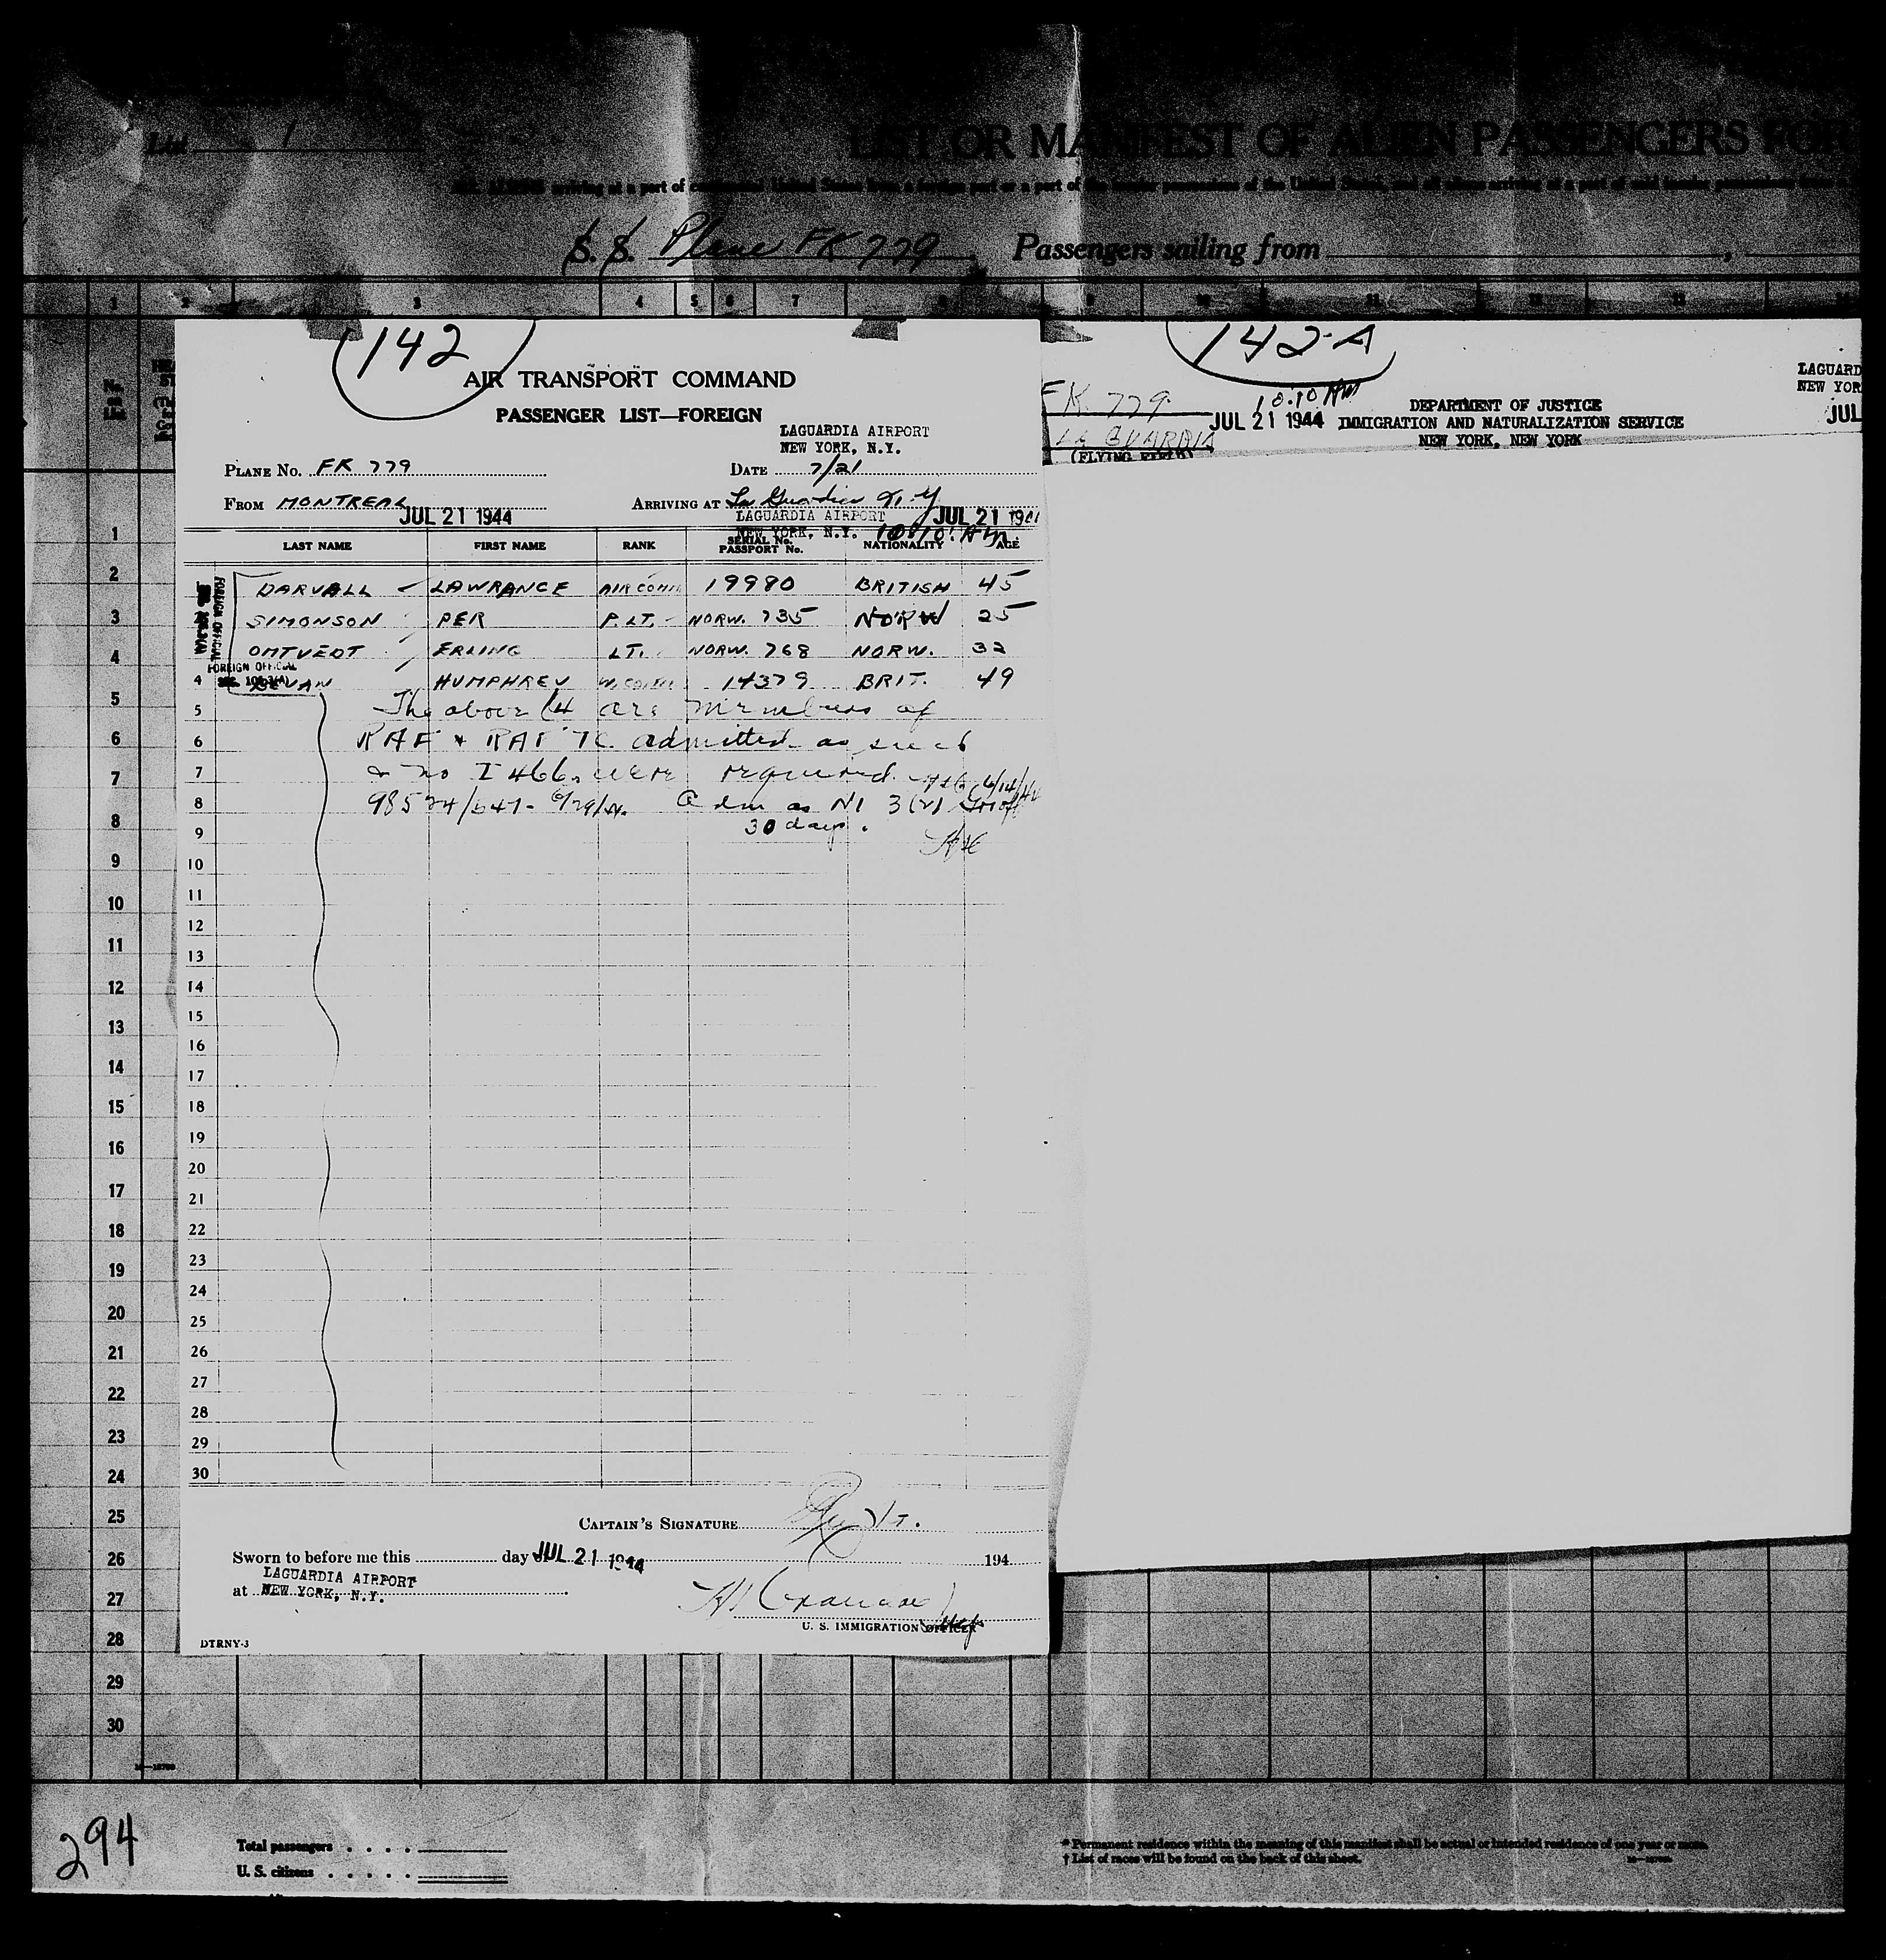 List 1
LIST OR MANIFEST OF ALIEN PASSENGERS FOR
ALL ALIENS arriving at a port of continental United States from a foreign port or a port of the insular possessions of the United States, and all aliens arriving at a port of said insular possessions
S. S. Plane FK 779 Passengers sailing from
1 2 3 4 5 6 7 8 9 10 11 12 13 14
No. on List
142
AIR TRANSPORT COMMAND
PASSENGER LIST—FOREIGN
LAGUARDIA AIRPORT
NEW YORK, N.Y.
PLANE No. FK 779 DATE 7/21
FROM MONTREAL ARRIVING AT La Guardia N.Y.
JUL 21 1944 LAGUARDIA AIRPORT JUL 21 194
NEW YORK, N.Y. 10:10 AM
LAST NAME FIRST NAME RANK SERIAL No. PASSPORT No. NATIONALITY AGE
FOREIGN OFFICIAL
DARVALL LAWRANCE AIR COMM 19980 BRITISH 45
SIMONSON PER P.LT. NORW. 735 NORW 25
OMTVEDT ERLING LT. NORW. 768 NORW. 32
FOREIGN OFFICIAL
SEC. 10
4 BEVAN HUMPHREY 14379 BRIT. 49
5 The above (4 are members of
6 RAF & RAF TC. admitted as such
7 & no I 466. were required 6/14/44
8 Adm as N1 3(2)
9 30 days.
10
11
12
13
14
15
16
17
18
19
20
21
22
23
24
25
26
27
28
29
30
CAPTAIN'S SIGNATURE
Sworn to before me this day JUL 21 1944 194
LAGUARDIA AIRPORT
at NEW YORK, N.Y.
U. S. IMMIGRATION OFFICER
DTRNY-3
142-A
FK 779 10:10 AM
JUL 21 1944
LA GUARDIA
(FLYING FIELD)
DEPARTMENT OF JUSTICE
IMMIGRATION AND NATURALIZATION SERVICE
NEW YORK, NEW YORK
LAGUARD
NEW YOR
JUL
1
2
3
4
5
6
7
8
9
10
11
12
13
14
15
16
17
18
19
20
21
22
23
24
25
26
27
28
29
30
294
Total passengers
U. S. citizens
* Permanent residence within the meaning of this manifest shall be actual or intended residence of one year or more.
† List of races will be found on the back of this sheet.